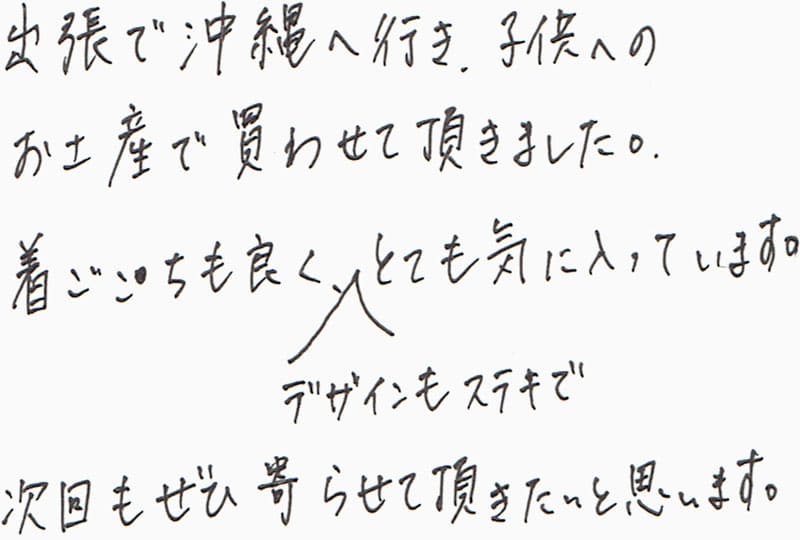 出張で沖縄へ行き、子供への
お土産で買わせて頂きました。
着ごこちも良く、とても気に入っています。
デザインもステキで
次回もぜひ寄らせて頂きたいと思います。